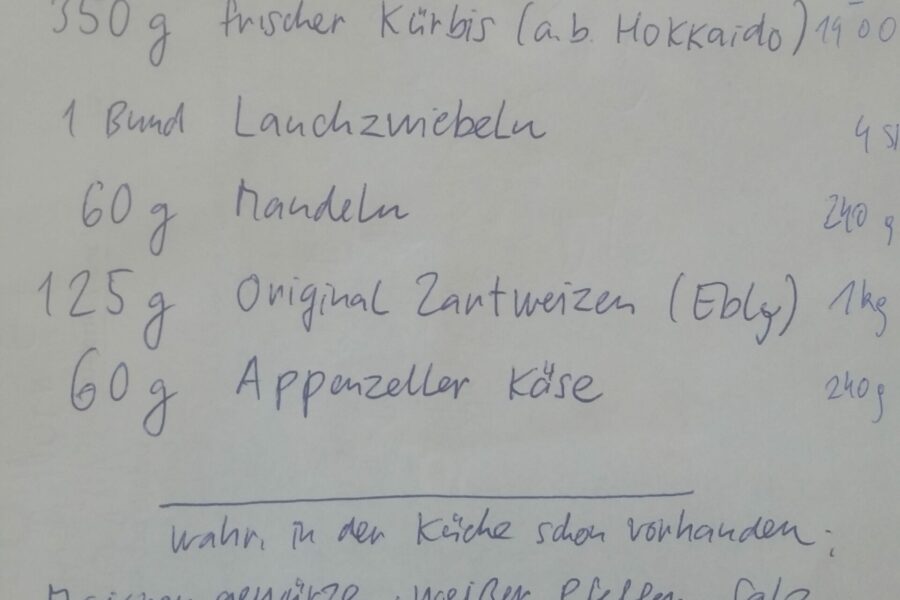 350 g frischer Kürbis (a.b. Hokkaido) 1400
1 Bund Lauchzwiebeln 4
60 g Mandeln 240 g
125 g Original Zartweizen (Ebly) 1kg
60 g Appenzeller Käse 240g
wahr. in der Küche schon vorhanden:
gewürze, weißer Pfeffer, Salz